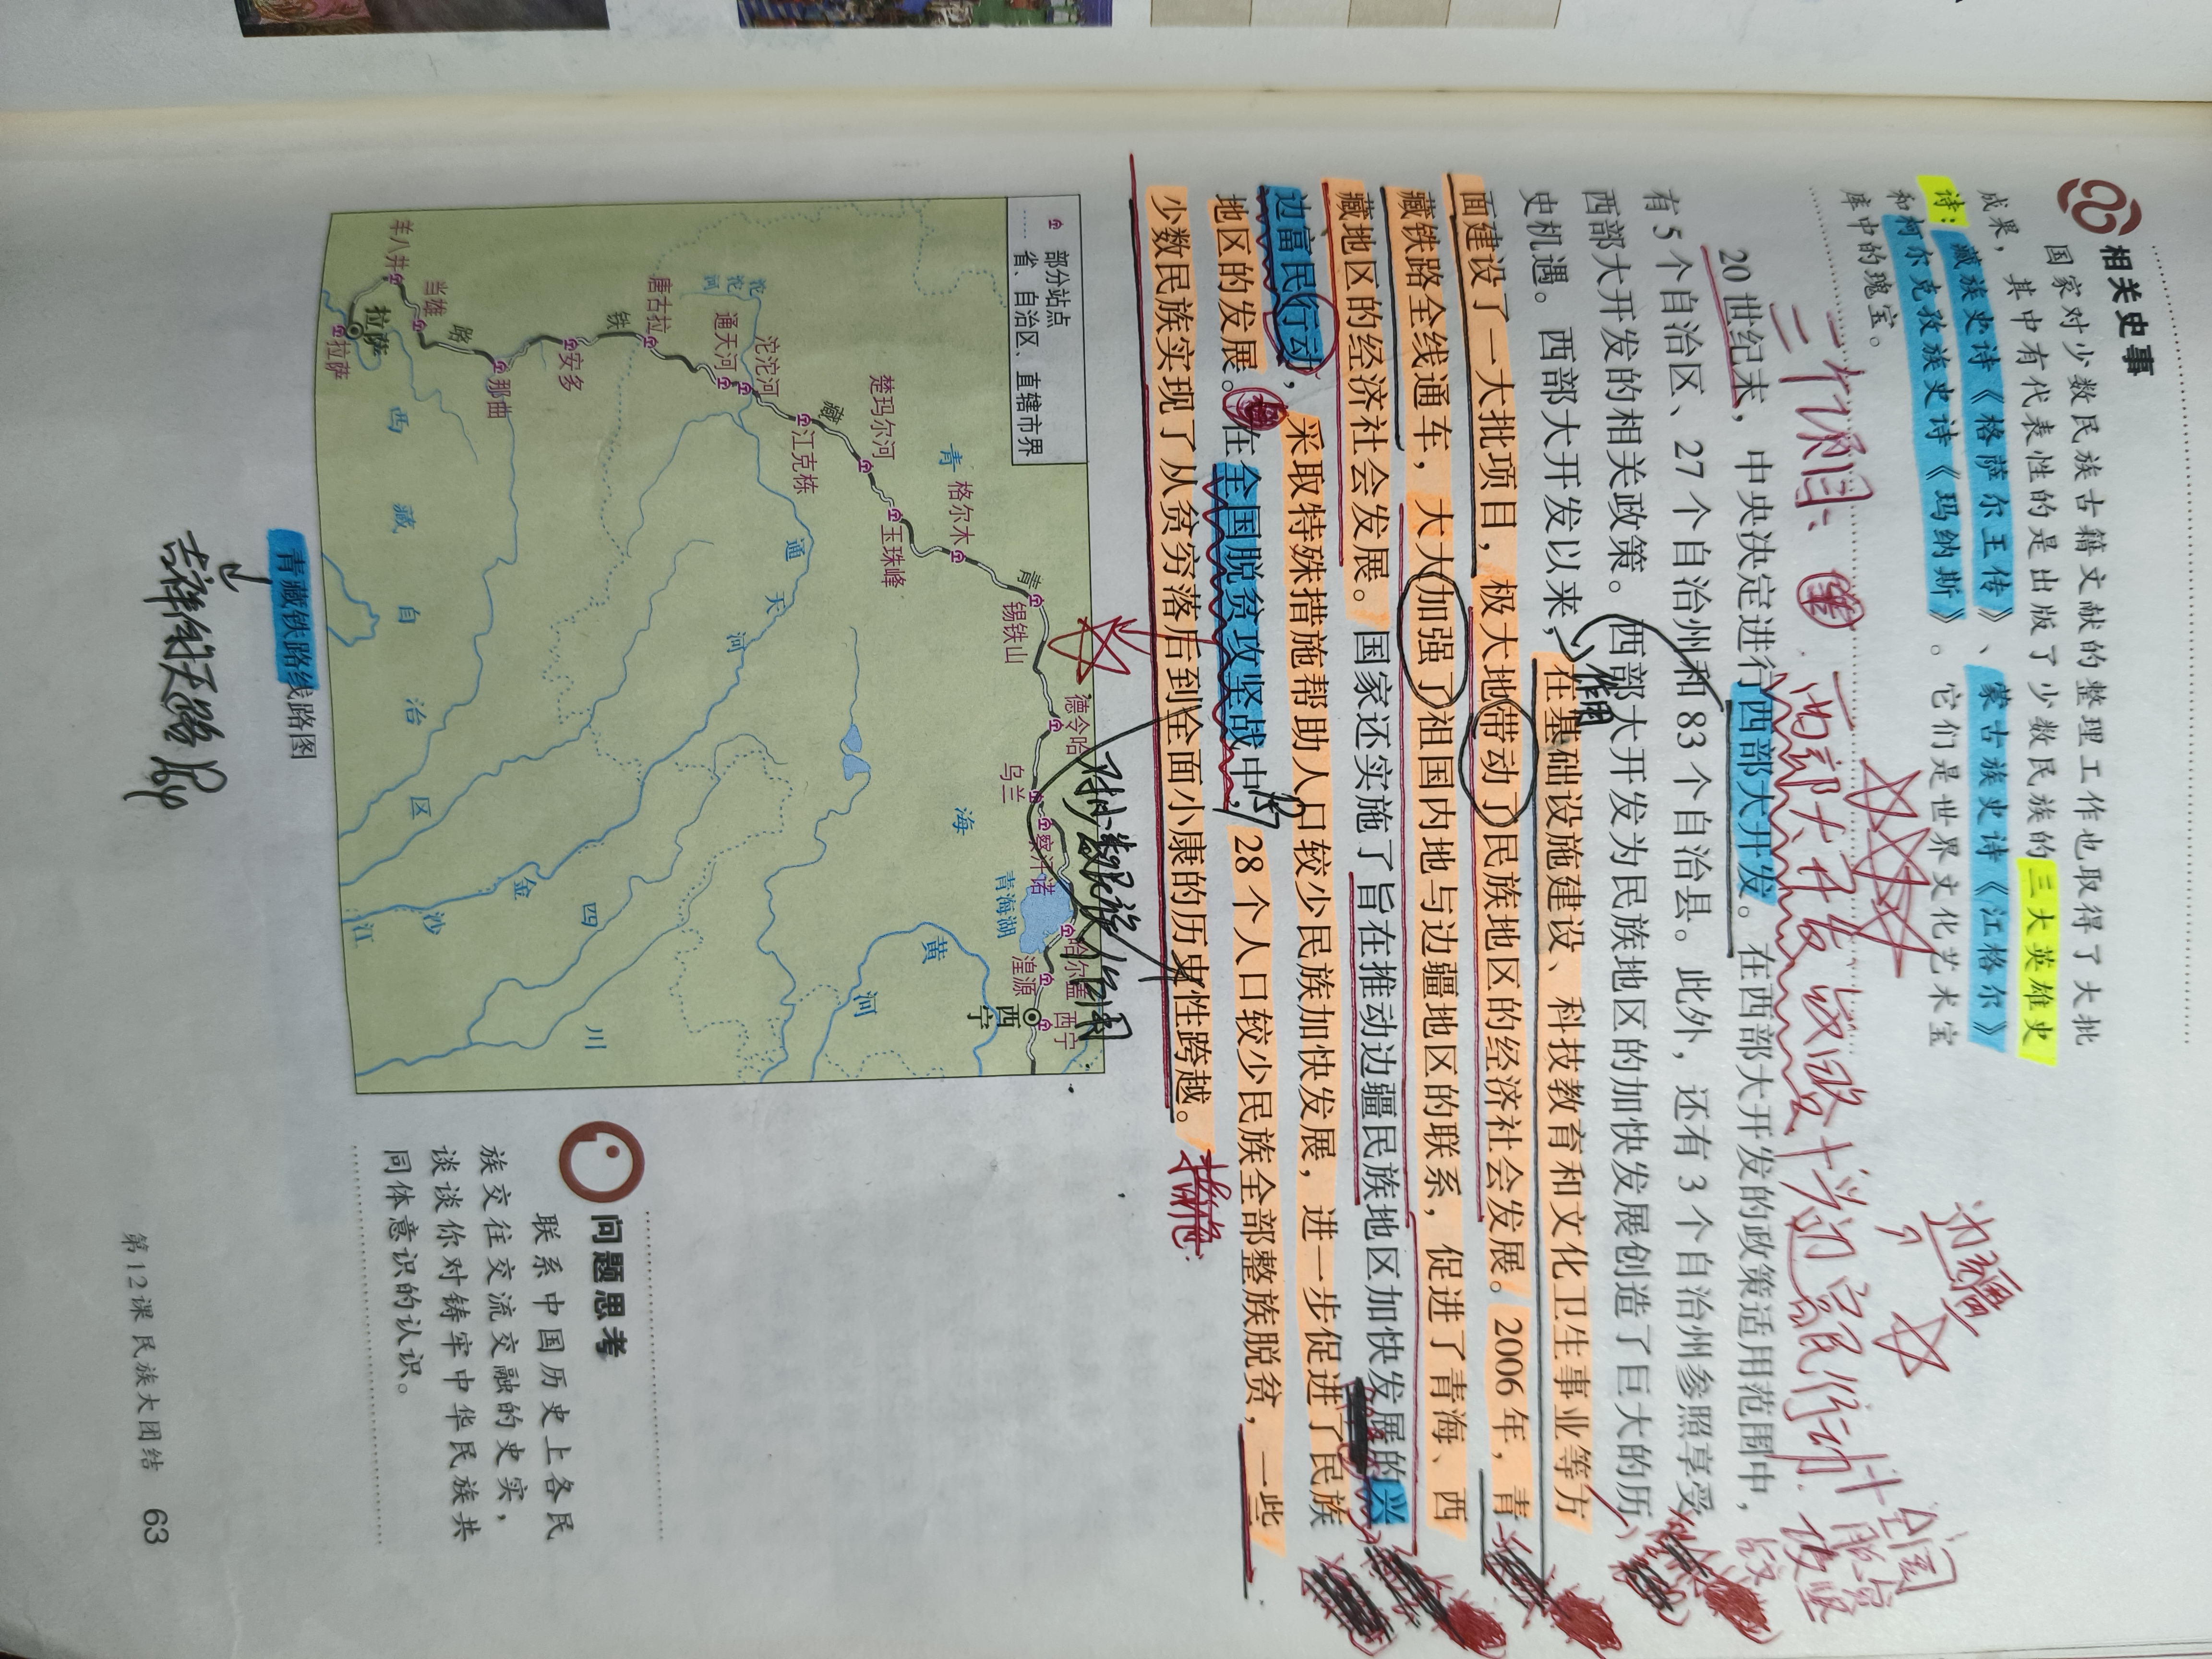 相关史事
国家对少数民族古籍文献的整理工作也取得了大批
成果，其中有代表性的是出版了少数民族的三大英雄史
诗：藏族史诗《格萨尔王传》、蒙古族史诗《江格尔》
和柯尔克孜族史诗《玛纳斯》。它们是世界文化艺术宝
库中的瑰宝。
边疆
西部大开发战略+兴边富民行动+全国
脱贫
攻坚
战
20世纪末，中央决定进行西部大开发。在西部大开发的政策适用范围中，
有5个自治区、27个自治州和83个自治县。此外，还有3个自治州参照享受
西部大开发的相关政策。西部大开发为民族地区的加快发展创造了巨大的历
史机遇。西部大开发以来，在基础设施建设、科技教育和文化卫生事业等方
作用
面建设了一大批项目，极大地带动了民族地区的经济社会发展。2006年，青
藏铁路全线通车，大大加强了祖国内地与边疆地区的联系，促进了青海、西
藏地区的经济社会发展。国家还实施了旨在推动边疆民族地区加快发展的兴
边富民行动，采取特殊措施帮助人口较少民族加快发展，进一步促进了民族
地区的发展。在全国脱贫攻坚战中，28个人口较少民族全部整族脱贫，一些
少数民族实现了从贫穷落后到全面小康的历史性跨越。
措施
部分站点
省、自治区、直辖市界
西宁
西宁
湟源
哈尔盖
青海湖
察汗诺
乌兰
德令哈
锡铁山
青
格尔木
玉珠峰
楚玛尔河
江克栋
藏
沱沱河
通天河
沱沱河
唐古拉
铁
安多
那曲
路
当雄
羊八井
拉萨
拉萨
青海
黄河
通天河
西藏自治区
四川
金沙江
青藏铁路线路图
问题思考
联系中国历史上各民
族交往交流交融的史实，
谈谈你对铸牢中华民族共
同体意识的认识。
第12课 民族大团结 63